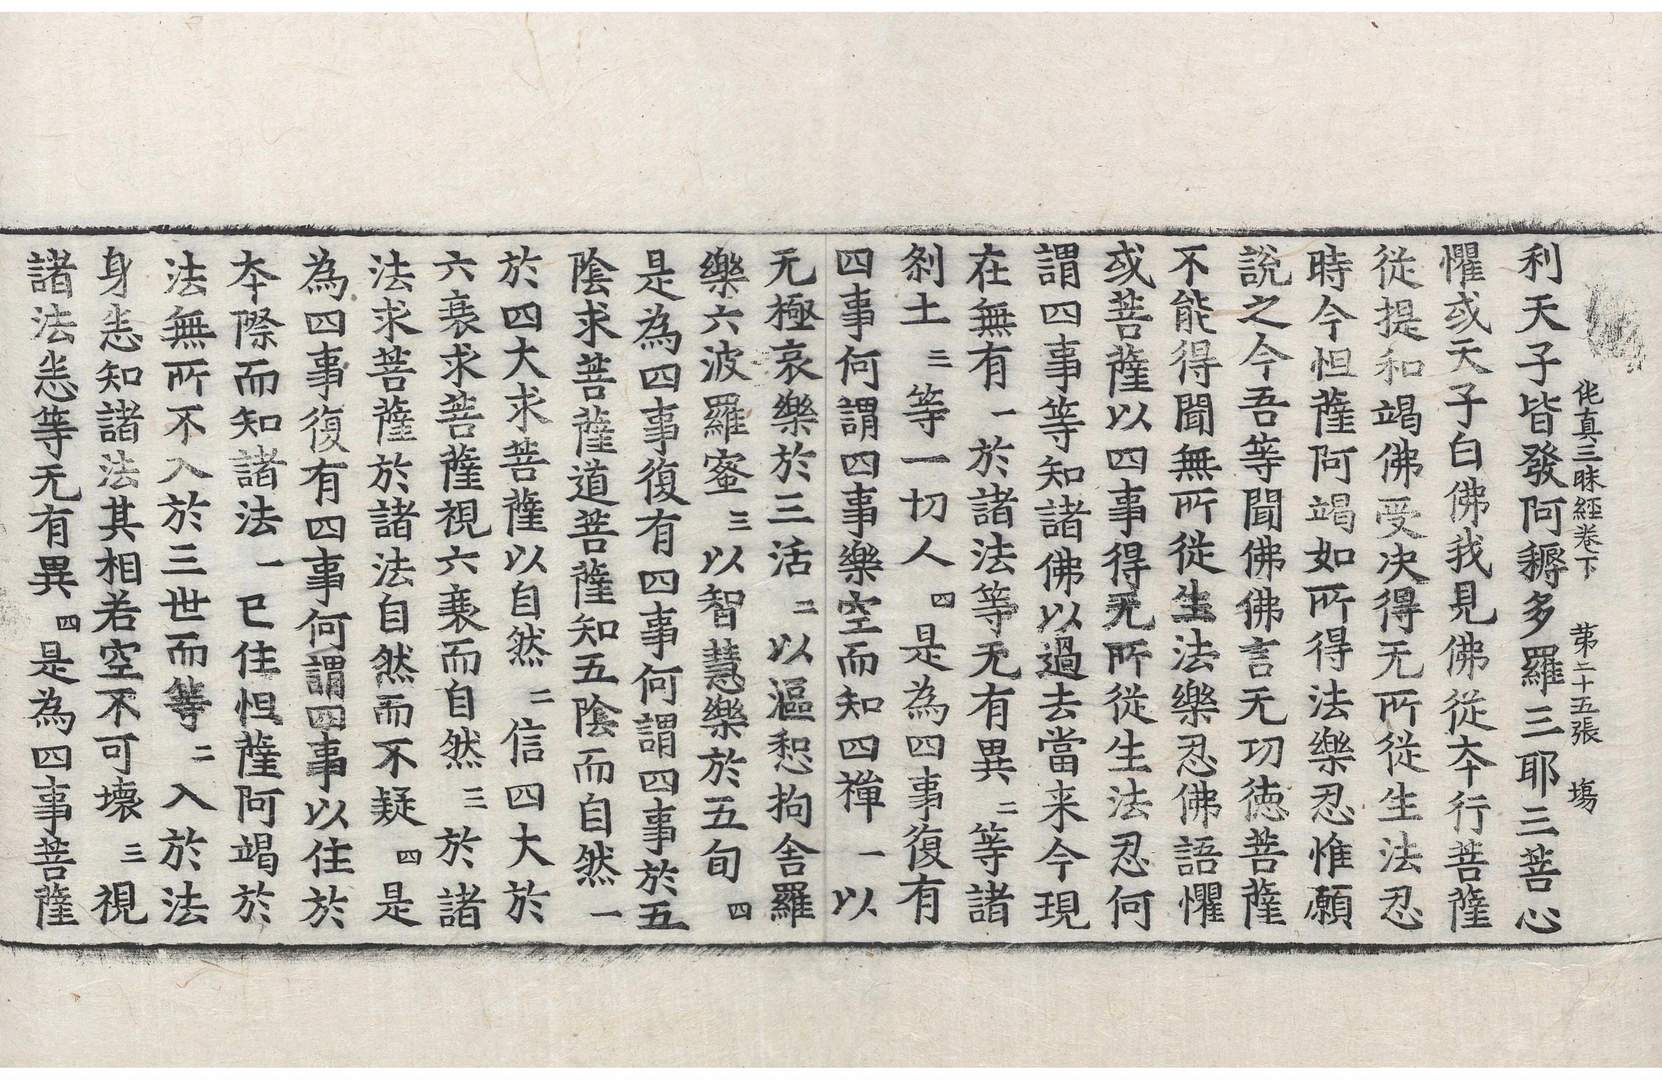 佗真三昧經卷下　第二十五張　塲
利天子皆發阿耨多羅三耶三菩心
懼或天子白佛我見佛從夲行菩薩
從提和竭佛受决得无所從生法忍
時今怛薩阿竭如所得法樂忍惟願
說之今吾等聞佛佛言无功德菩薩
不能得聞無所從生法樂忍佛語懼
或菩薩以四事得无所從生法忍何
謂四事等知諸佛以過去當来今現
在無有一於諸法等无有異二等諸
剎土三等一切人四是為四事復有
四事何謂四事樂空而知四禪一以
无極哀樂於三活二以漚惒拘舍羅
樂六波羅蜜三以智慧樂於五旬四
是為四事復有四事何謂四事於五
陰求菩薩道菩薩知五陰而自然一
於四大求菩薩以自然二信四大於
六衰求菩薩視六衰而自然三於諸
法求菩薩於諸法自然而不疑四是
為四事復有四事何謂四事以住於
夲際而知諸法一已住怛薩阿竭於
法無所不入於三世而等二入於法
身悉知諸法其相若空不可壞三視
諸法悉等无有異四是為四事菩薩